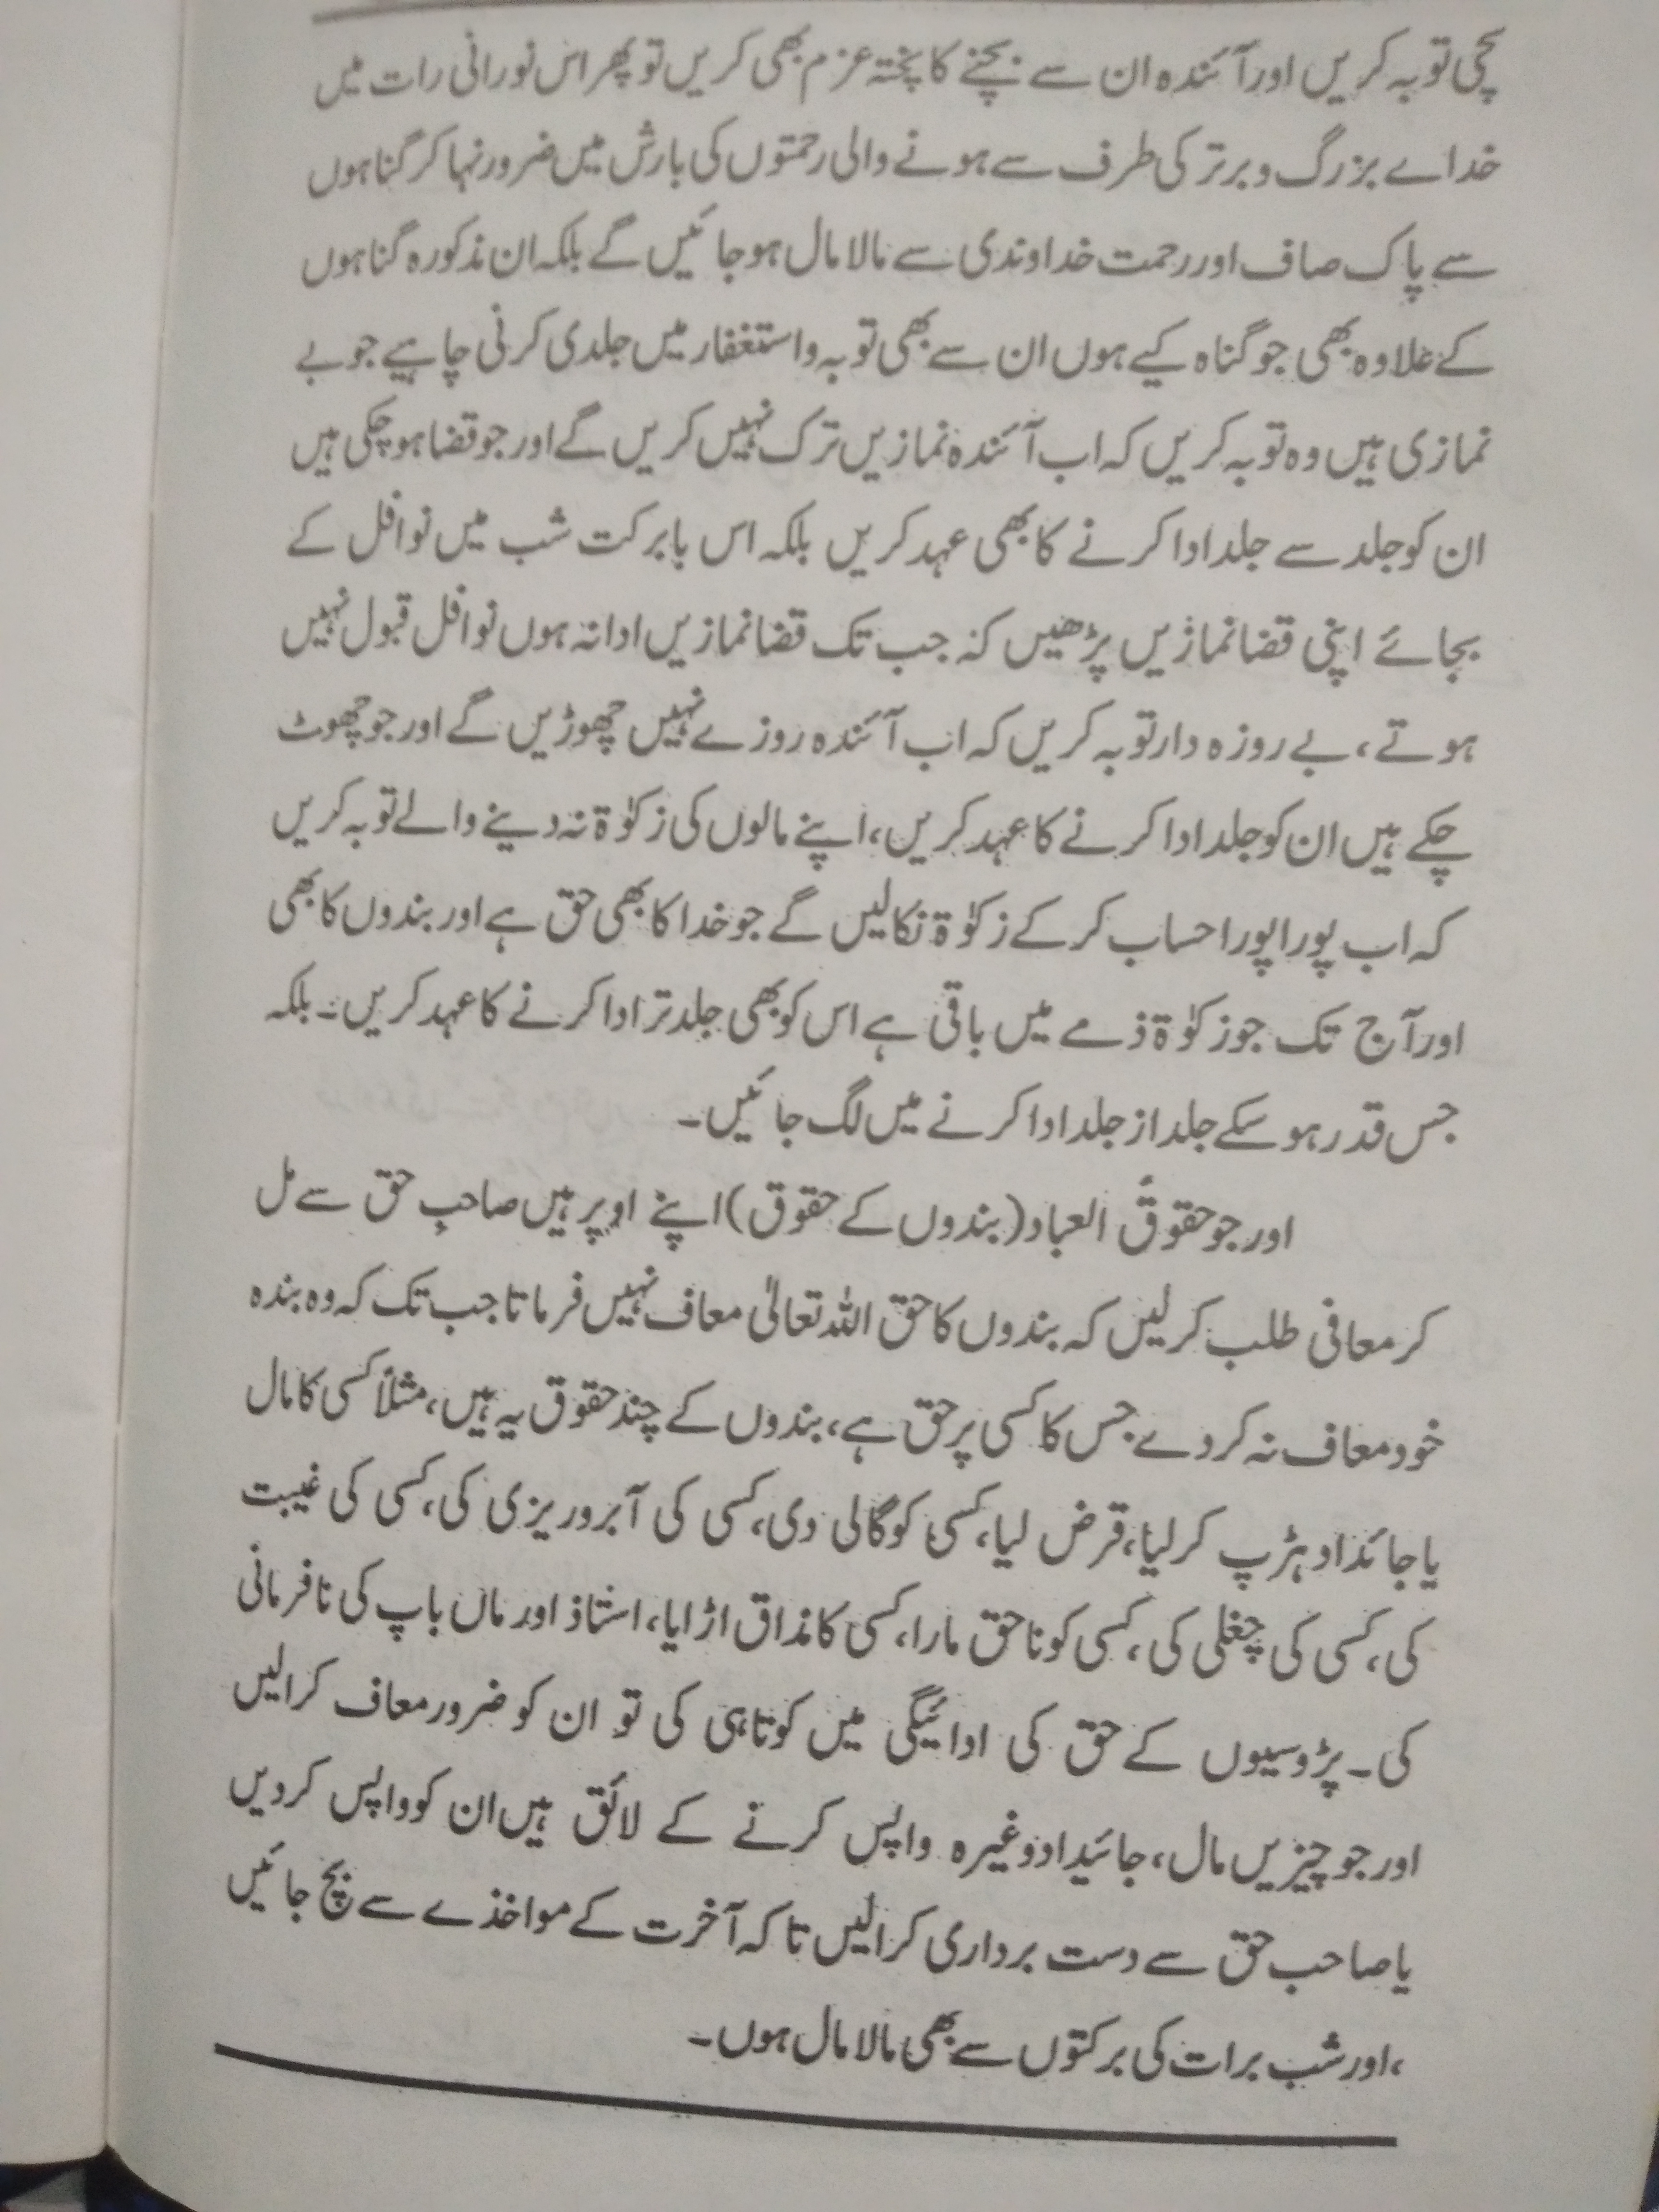 سچی توبہ کریں اور آئندہ ان سے بچنے کا پختہ عزم بھی کریں تو پھر اس نورانی رات میں
خداے بزرگ و برتر کی طرف سے ہونے والی رحمتوں کی بارش میں ضرور نہا کر گناہوں
سے پاک صاف اور رحمت خداوندی سے مالا مال ہوجائیں گے بلکہ ان مذکورہ گناہوں
کے علاوہ بھی جو گناہ کیے ہوں ان سے بھی توبہ و استغفار میں جلدی کرنی چاہیے جو بے
نمازی ہیں وہ توبہ کریں کہ اب آئندہ نمازیں ترک نہیں کریں گے اور جو قضا ہو چکی ہیں
ان کو جلد سے جلد ادا کرنے کا بھی عہد کریں بلکہ اس بابرکت شب میں نوافل کے
بجائے اپنی قضا نمازیں پڑھیں کہ جب تک قضا نمازیں ادا نہ ہوں نوافل قبول نہیں
ہوتے، بے روزہ دار توبہ کریں کہ اب آئندہ روزے نہیں چھوڑیں گے اور جو چھوٹ
چکے ہیں ان کو جلد ادا کرنے کا عہد کریں، اپنے مالوں کی زکوٰۃ نہ دینے والے توبہ کریں
کہ اب پورا پورا حساب کر کے زکوٰۃ نکالیں گے جو خدا کا بھی حق ہے اور بندوں کا بھی
اور آج تک جو زکوٰۃ ذمے میں باقی ہے اس کو بھی جلد تر ادا کرنے کا عہد کریں۔ بلکہ
جس قدر ہو سکے جلد از جلد ادا کرنے میں لگ جائیں۔
اور جو حقوقُ العباد (بندوں کے حقوق) اپنے اوپر ہیں صاحبِ حق سے مل
کر معافی طلب کرلیں کہ بندوں کا حق اللہ تعالیٰ معاف نہیں فرماتا جب تک کہ وہ بندہ
خود معاف نہ کردے جس کا کسی پر حق ہے، بندوں کے چند حقوق یہ ہیں، مثلاً کسی کا مال
یا جائداد ہڑپ کرلیا، قرض لیا، کسی کو گالی دی، کسی کی آبروریزی کی، کسی کی غیبت
کی، کسی کی چغلی کی، کسی کو ناحق مارا، کسی کا مذاق اڑایا، استاذ اور ماں باپ کی نافرمانی
کی۔ پڑوسیوں کے حق کی ادائیگی میں کوتاہی کی تو ان کو ضرور معاف کرالیں
اور جو چیزیں مال، جائیداد وغیرہ واپس کرنے کے لائق ہیں ان کو واپس کردیں
یا صاحب حق سے دست برداری کرالیں تاکہ آخرت کے مواخذے سے بچ جائیں
،اور شب برات کی برکتوں سے بھی مالا مال ہوں۔